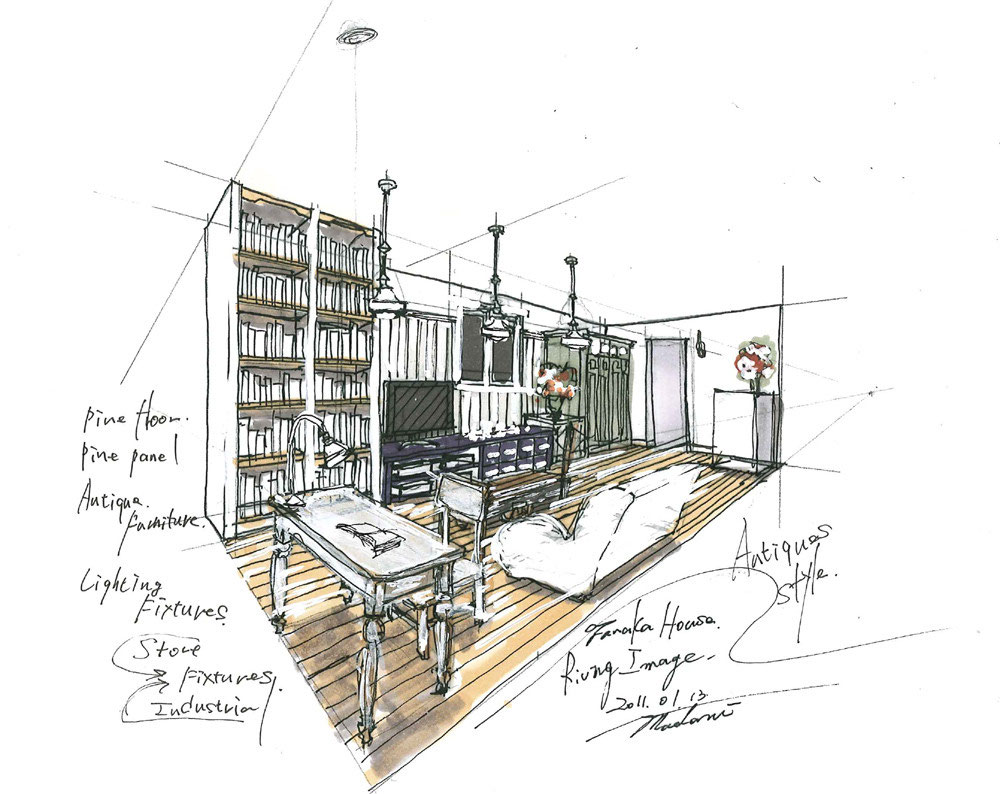 pine floor.
pine panel
Antique.
furniture.
Lighting
Fixtures
Store
Fixtures.
Industrial
Antiques
style.
Tanaka House.
Riving Image.
2011.01.13